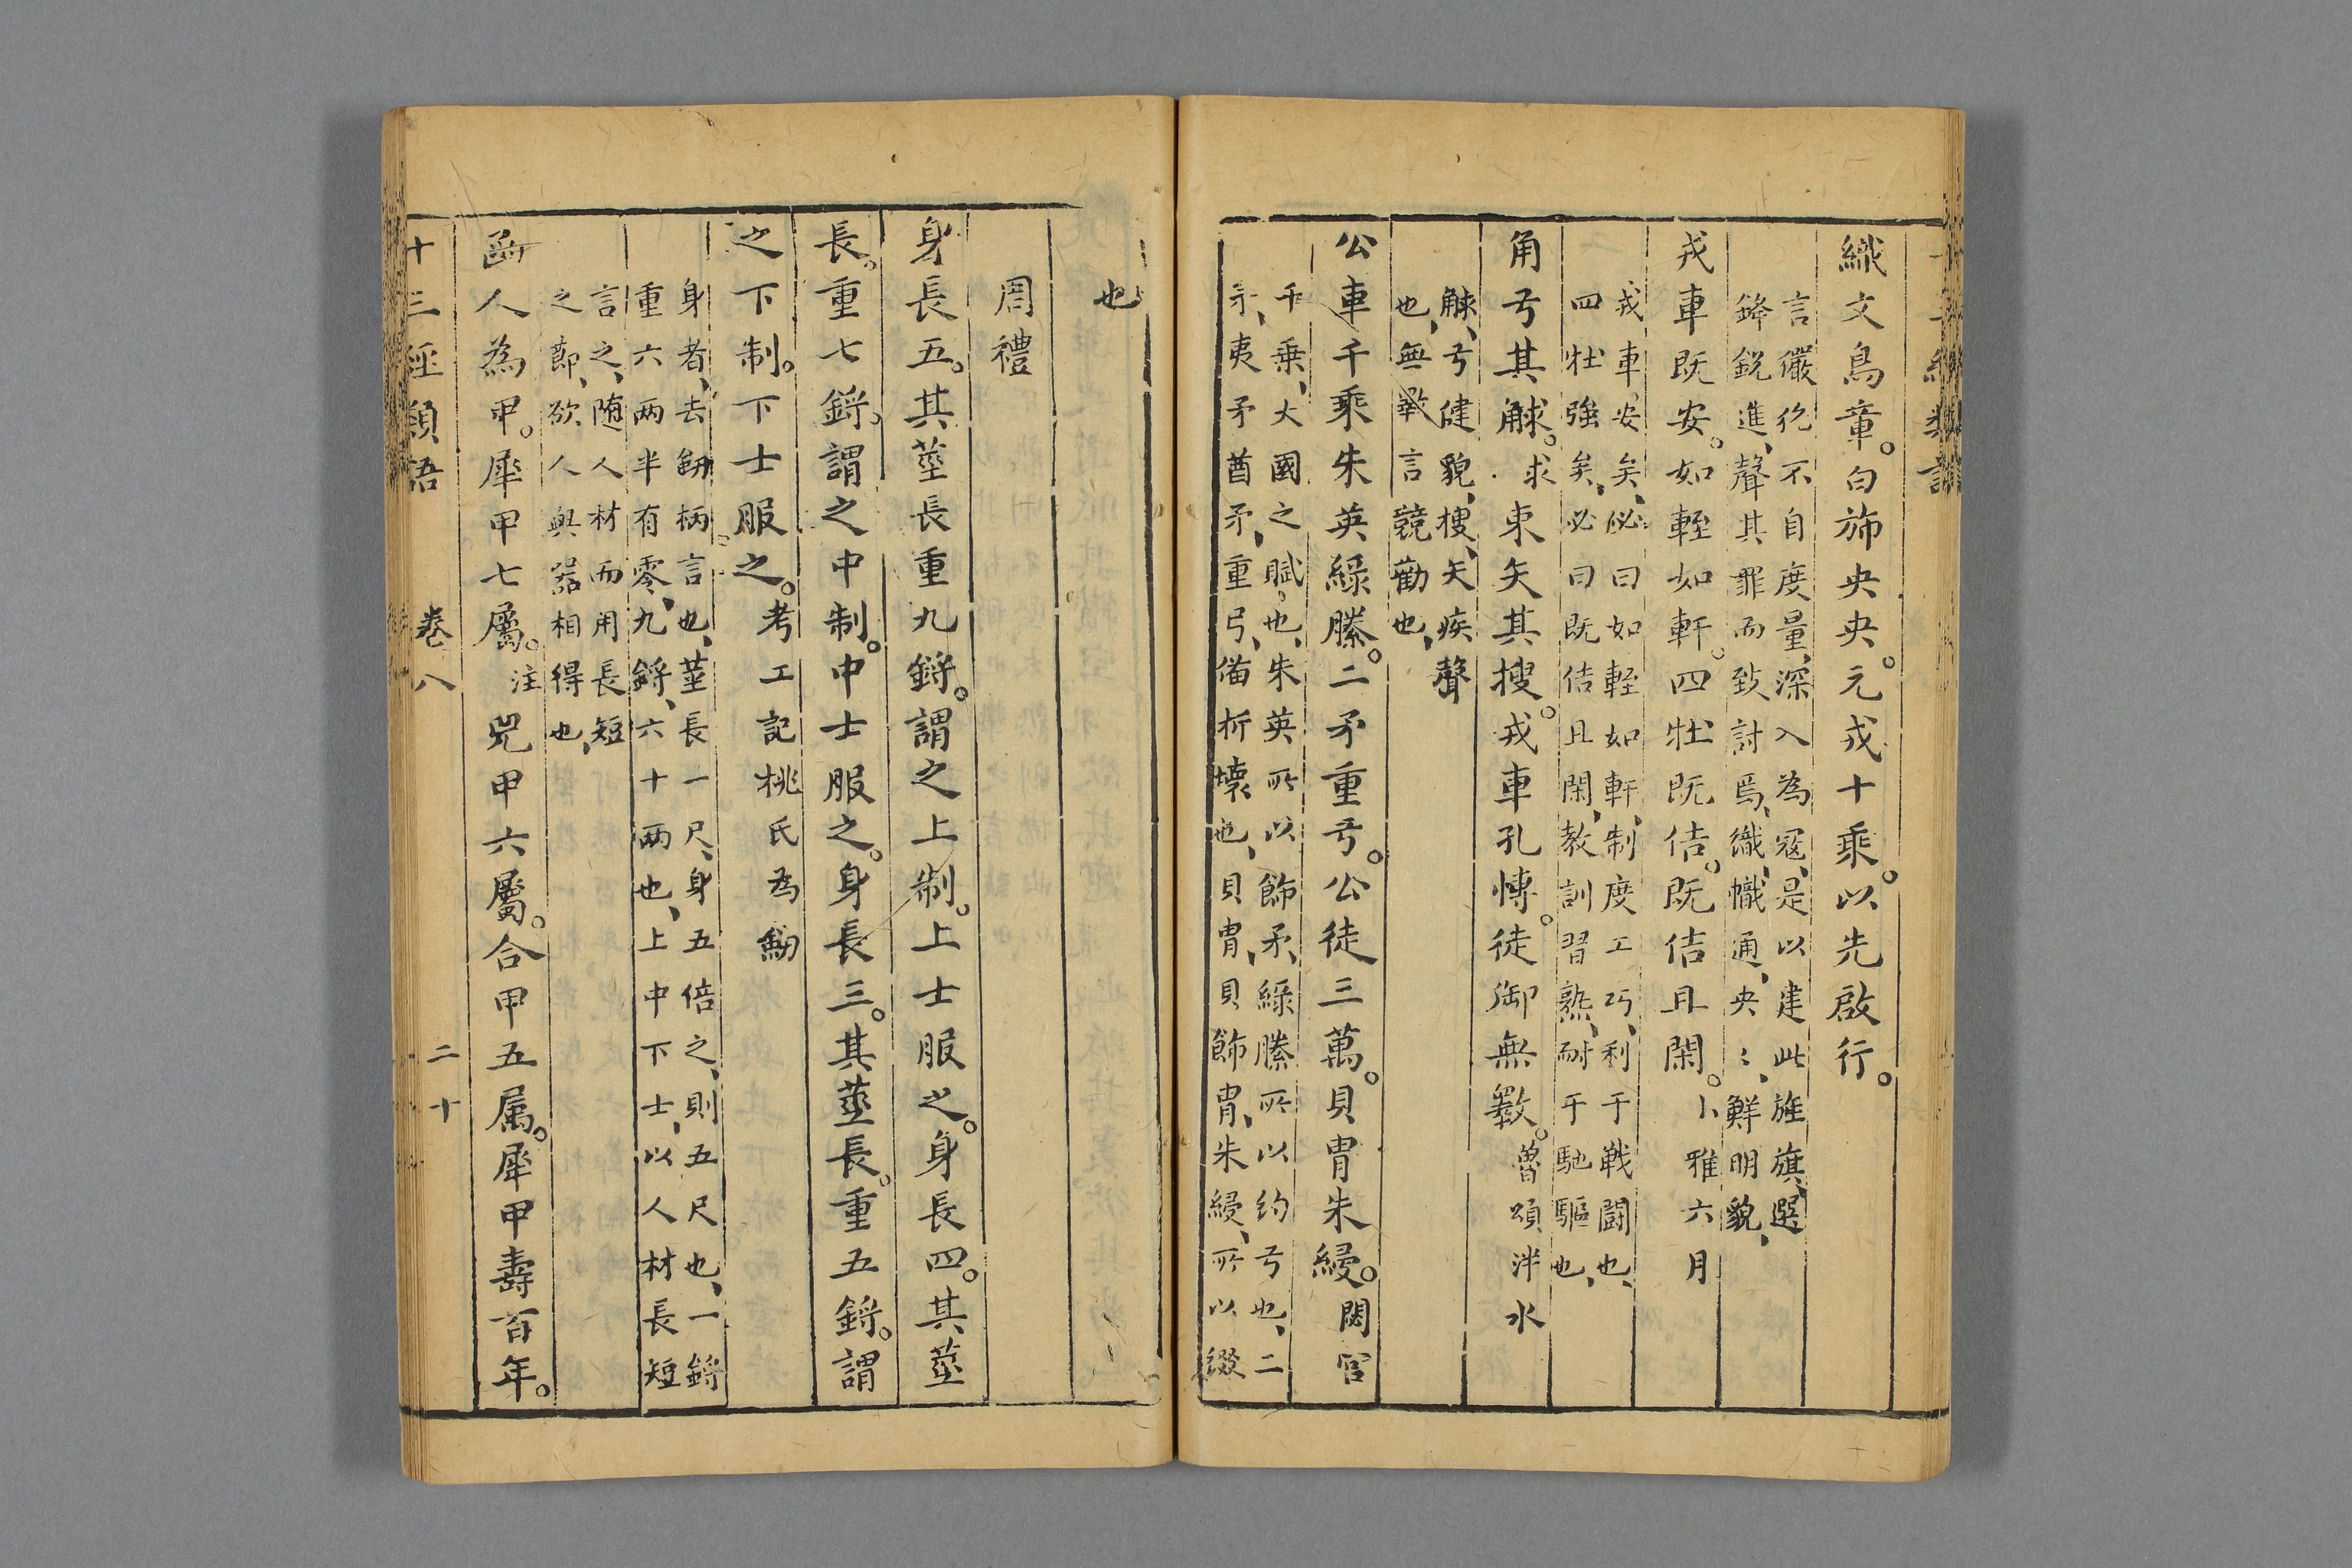 織文鳥章。白斾央央。元戎十乘。以先啟行。
言儼狁不自度量、深入為寇、是以建此旌旗、選
鋒銳進、聲其罪而致討焉、織、幟通、央〻、鮮明貌、
戎車既安。如輊如軒。四牡既佶。既佶且閑。小雅六月
戎車、安矣、必曰如輊如軒、制度工巧、利于戰闘也、
四牡強矣、必曰既佶且閑、教訓習熟、耐于馳驅也、
角弓其觩。求束矢其搜。戎車孔慱。徒御無斁。魯頌泮水
觩、弓健貌、搜、矢疾聲
也、無斁言競勸也、
公車千乘朱英綠縢。二矛重弓。公徒三萬。貝胄朱綅。閟宮
千乘、大國之賦也、朱英所以飾矛、綠縢所以約弓也、二
矛、夷矛酋矛、重弓、備折壞也、貝胄、貝飾胄、朱綅、所以綴
也
周禮
身長五。其莖長重九鋝。謂之上制。上士服之。身長四。其莖
長。重七鋝。謂之中制。中士服之。身長三。其莖長。重五鋝。謂
之下制。下士服之。考工記桃氏為劒
身者、去劒柄言也、莖長一尺、身五倍之、則五尺也、一鋝
重六兩半有零、九鋝、六十兩也、上中下士、以人材長短
言之、随人材而用長短
之節、欲人與器相得也、
函人為甲。犀甲七屬。注兕甲六屬。合甲五属。犀甲壽百年。
十三經類語 卷八 二十